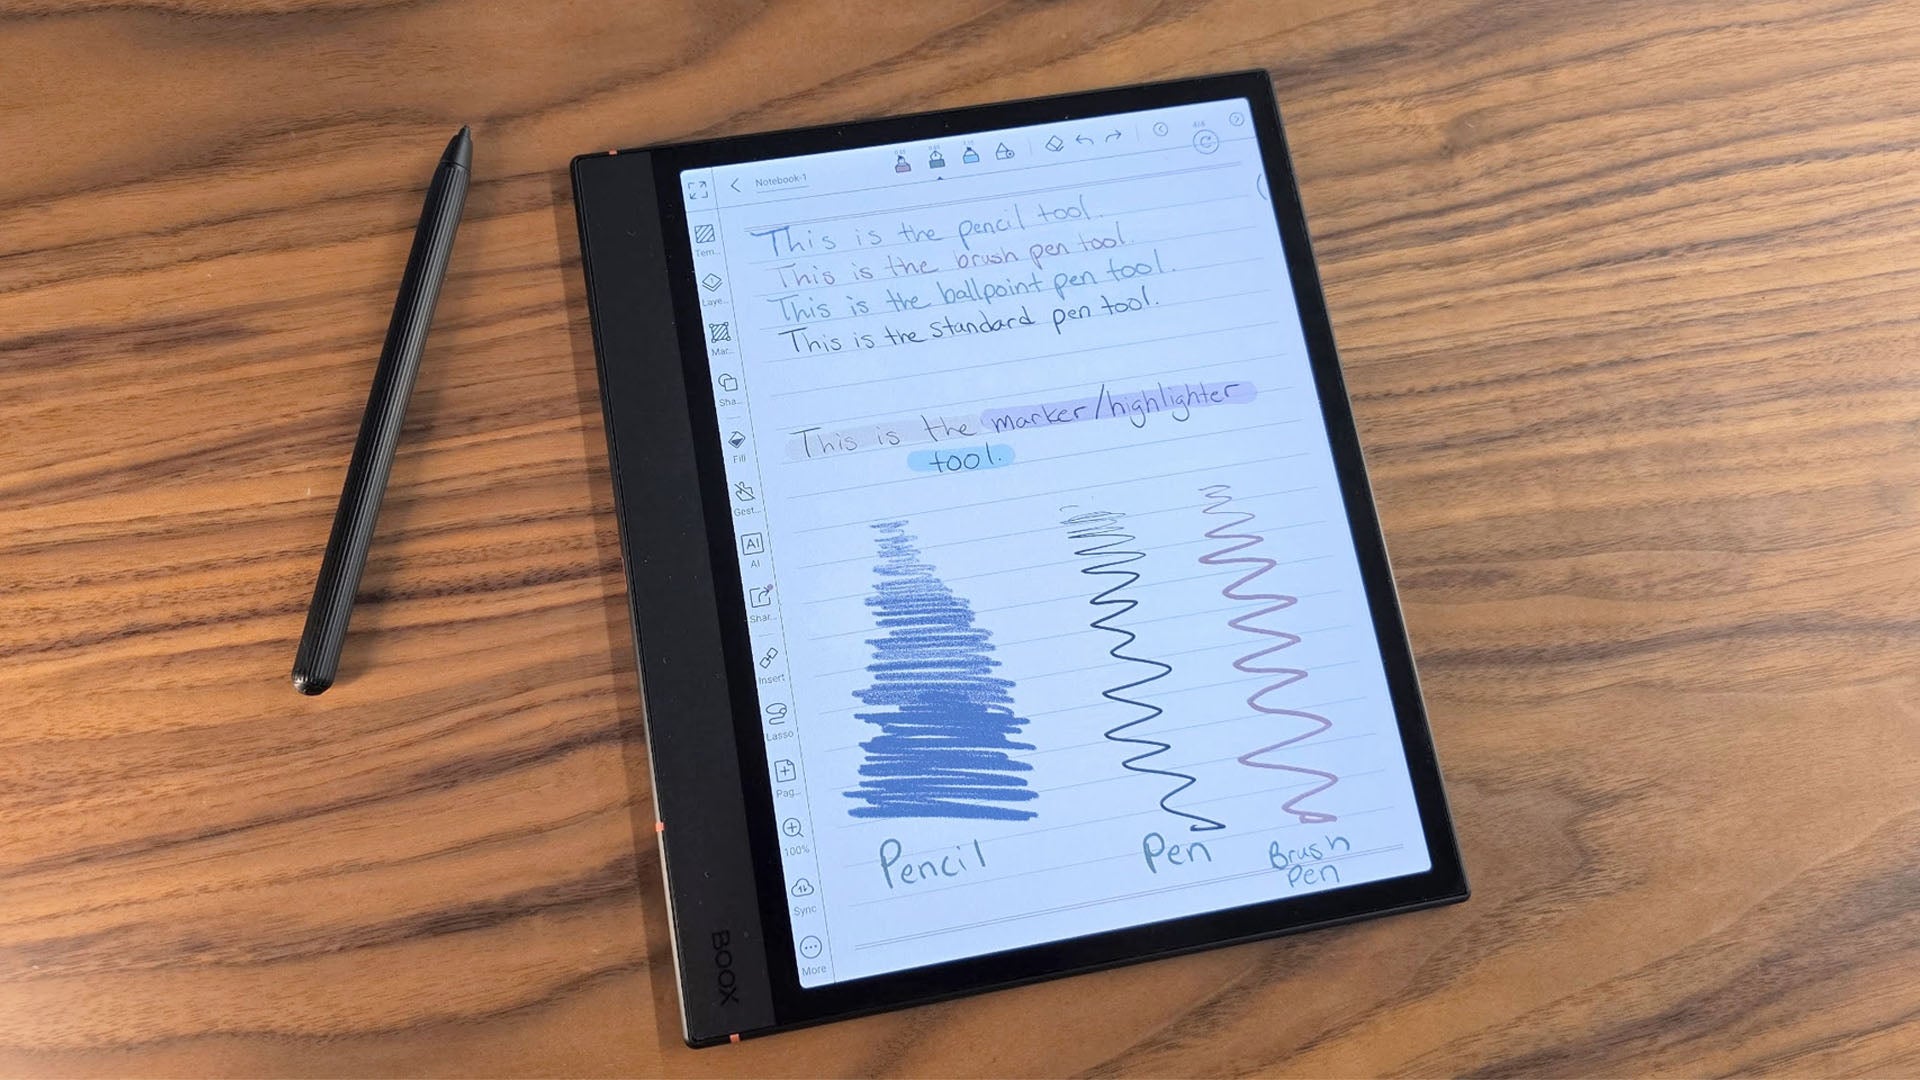 Notebook-1
4/4
Tem...
Laye...
Mar...
Sha...
Fill
Gest...
AI
AI
Shar...
Insert
Lasso
Pag...
100%
Sync
More
This is the pencil tool.
This is the brush pen tool.
This is the ballpoint pen tool.
This is the standard pen tool.
This is the marker/highlighter
tool.
Pencil
Pen
Brush
Pen
BOOX